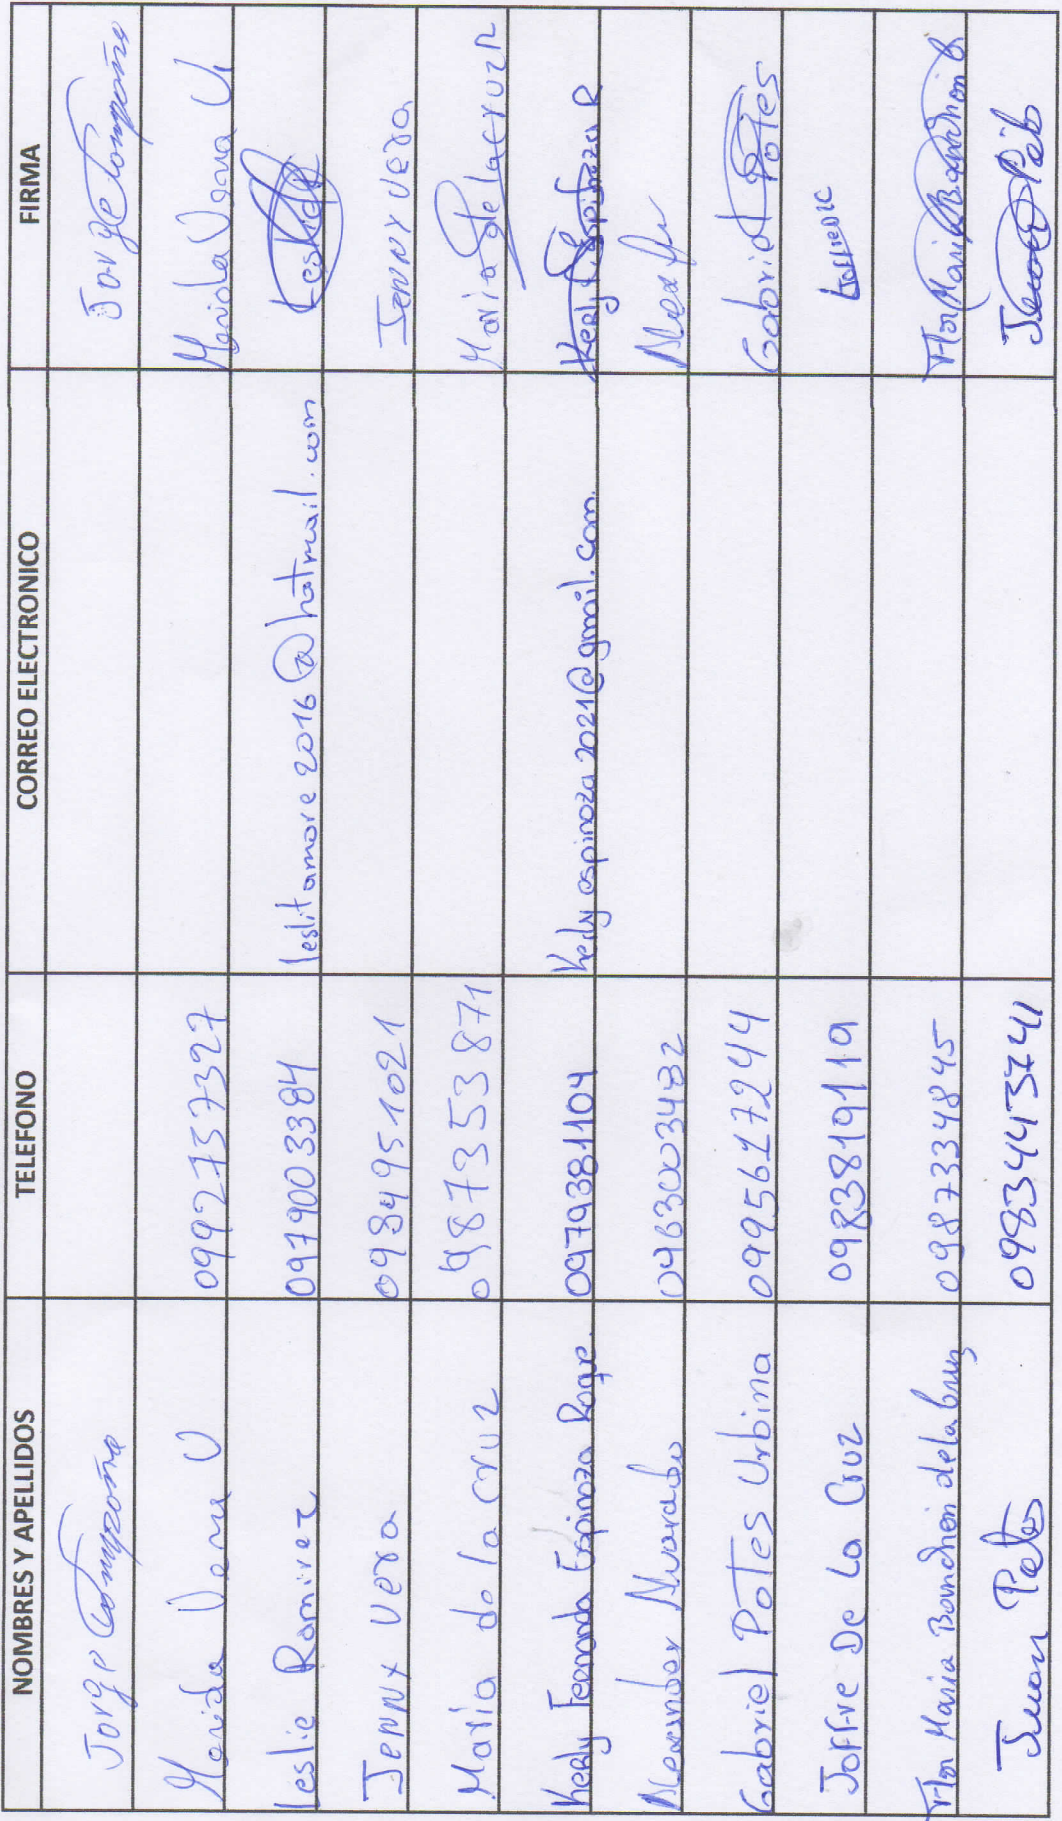 NOMBRES Y APELLIDOS TELEFONO CORREO ELECTRONICO FIRMA
Jorge Campoaño Jorge Campoaño
0992737327
Leslie Ramirez 0979003384 leslitamore2016@hotmail.com Leslie
Jenny Vera 0984951021 Jenny Vera
Maria de la Cruz 0987353871 Maria de la Cruz R
Kerly Fernanda Espinoza Roque. 0979381104 Kerlyespinoza2021@gmail.com. Kerly Espinoza R
Alexander Alvarado 0963003432 Alex
Gabriel Potes Urbina 0995617244 Gabriel Potes
Joffre De La Cruz 0983819119 JoffreDLC
Flor Maria delaCruz 0987334845 Flor Maria
Juan Potes 0983443741 Juan